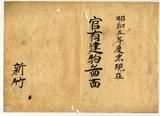 昭和五年度末現在
官有建物圖面
新竹